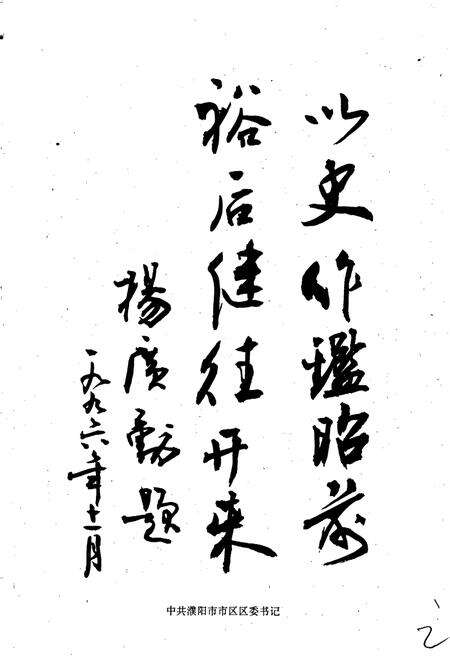 以史作鑑昭前
裕后健往开来
楊廣勳題
一九九六年十一月
中共濮阳市市区区委书记